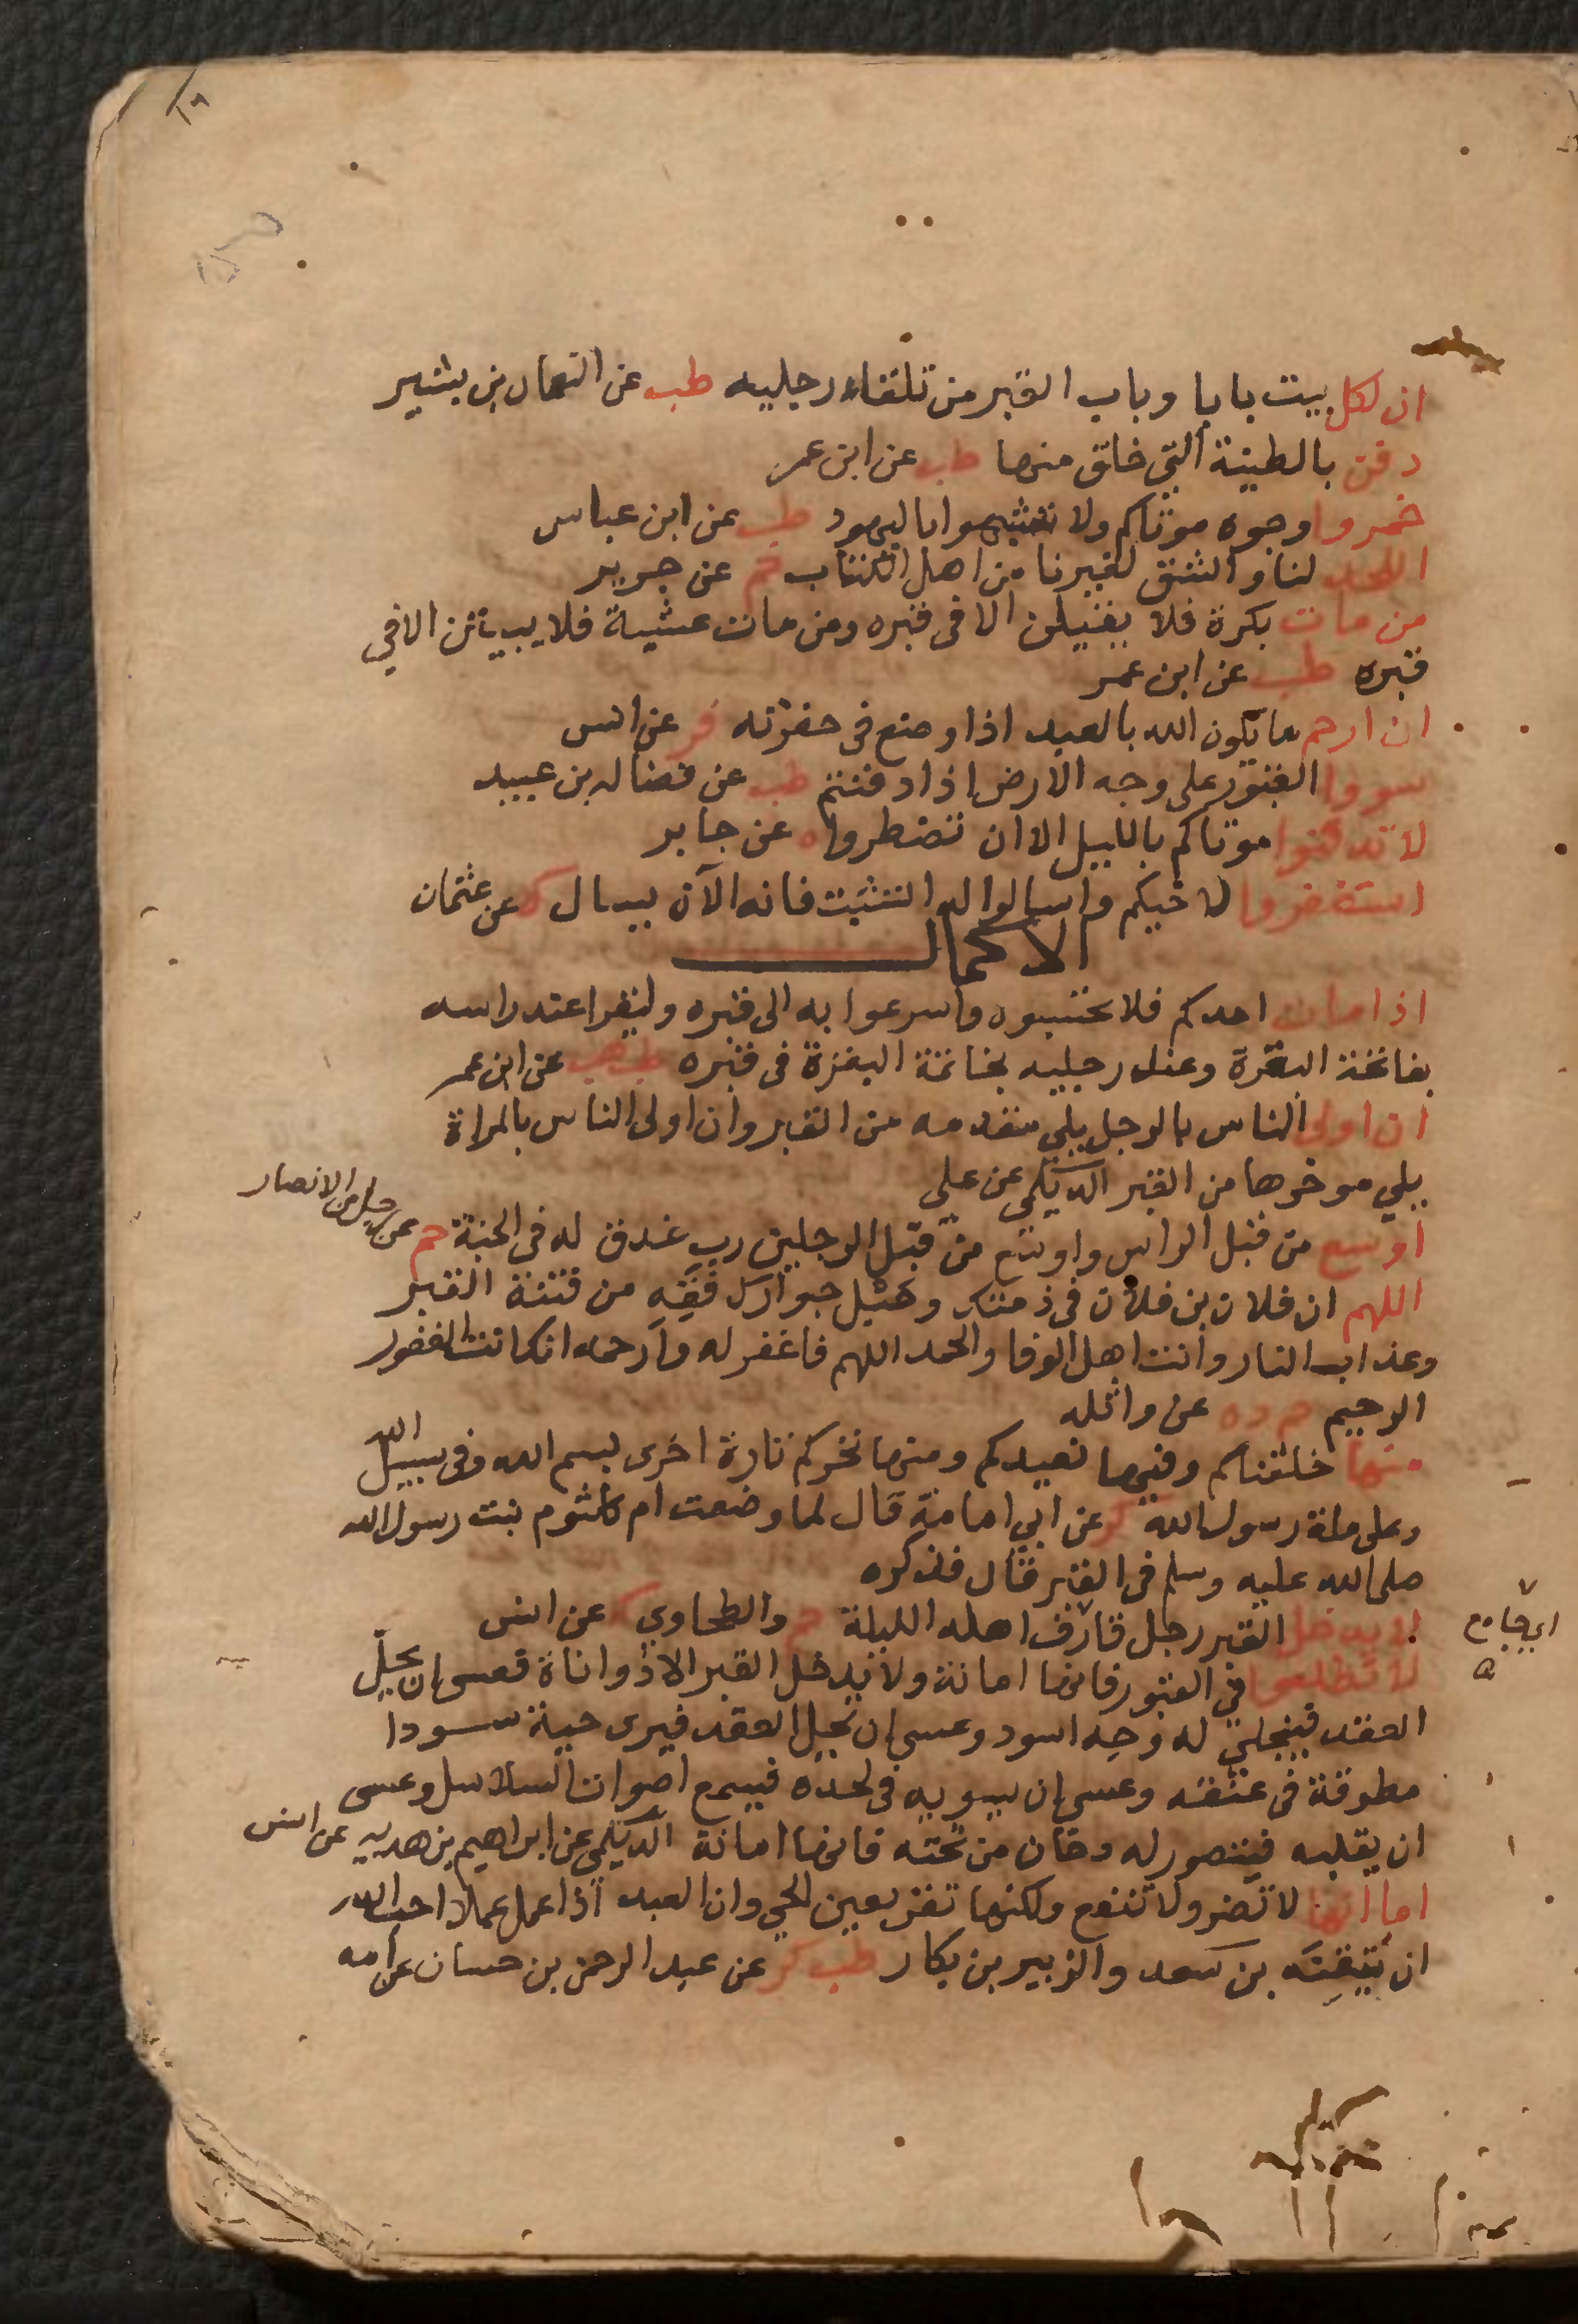 ان لكل بيت بابا وباب القبر من تلقاء رجليه طب عن النعمان بن بشير
دفن بالطينة التي خلق منها طب عن ابن عمر
خمروا وجوه موتاكم ولا تشبهوا باليهود طب عن ابن عباس
اللحد لنا والشق لغيرنا من اهل الكتاب حم عن جرير
من مات بكرة فلا يقيلن الا في قبره ومن مات عشية فلا يبيتن الا في
قبره طب عن ابن عمر
ان ارحم ما يكون الله بالعبد اذا وضع في حفرته فر عن انس
سووا القبور على وجه الارض اذا دفنتم طب عن فضاله بن عبيد
لا تدفنوا موتاكم بالليل الا ان تضطروا ه عن جابر
استغفروا لاخيكم واسالوا له التثبت فانه الآن يسال ك عن عثمان
الاكمال
اذا مات احدكم فلا تحبسوه واسرعوا به الى قبره وليقرا عند راسه
بفاتحة البقرة وعند رجليه بخاتمة البقرة في قبره طب هب عن ابن عمر
ان اولى الناس بالرجل يلي مقدمه من القبر وان اولى الناس بالمراة
يلي موخرها من القبر الديلمي عن علي
اوسع من قبل الراس واوسع من قبل الرجلين رب عذق له في الجنة حم عن رجل من الانصار
اللهم ان فلان بن فلان في ذمتك وحبل جوارك فقه من فتنة القبر
وعذاب النار وانت اهل الوفا والحمد اللهم فاغفر له وارحمه انك انت الغفور
الرحيم حم د ه عن واثله
منها خلقناكم وفيها نعيدكم ومنها نخرجكم تارة اخرى بسم الله وفي سبيل الله
وعلى ملة رسول الله ك عن ابي امامة قال لما وضعت ام كلثوم بنت رسول الله
صلى الله عليه وسلم في القبر قال فذكره
لا يدخل القبر رجل قارف اهله الليلة حم والطحاوي ك عن انس
اي جامع
لا تطلعوا في القبور فانها امانة ولا يدخل القبر الا ذو اناة فعسى ان يحل
العقد فينجلي له وجه اسود وعسى ان يحل العقد فيرى حية سودا
مطوقة في عنقه وعسى ان يسويه في لحده فيسمع اصوات السلاسل وعسى
ان يقلبه فيتصور له دخان من تحته فانها امانة الديلمي عن ابراهيم بن هدبه عن انس
اما انها لا تضر ولا تنفع ولكنها تقر بعين الحي وان العبد اذا عمل عملا احب الله
ان يتقنه بن سعد والزبير بن بكار طب كر عن عبد الرحمن بن حسان عن امه